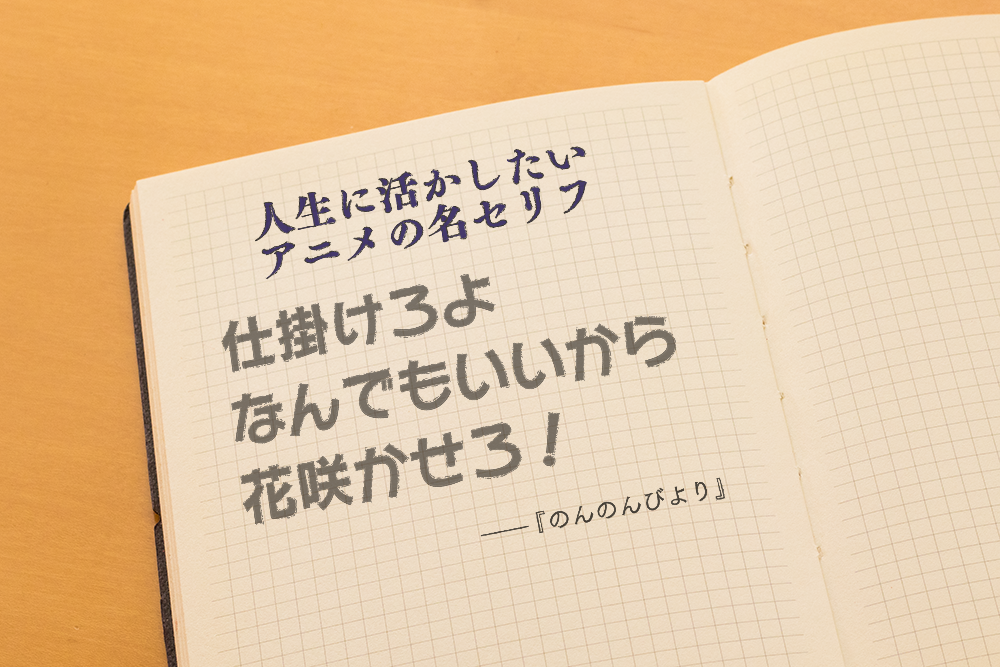 人生に活かしたい
アニメの名セリフ
仕掛けろよ
なんでもいいから
花咲かせろ！
――『のんのんびより』